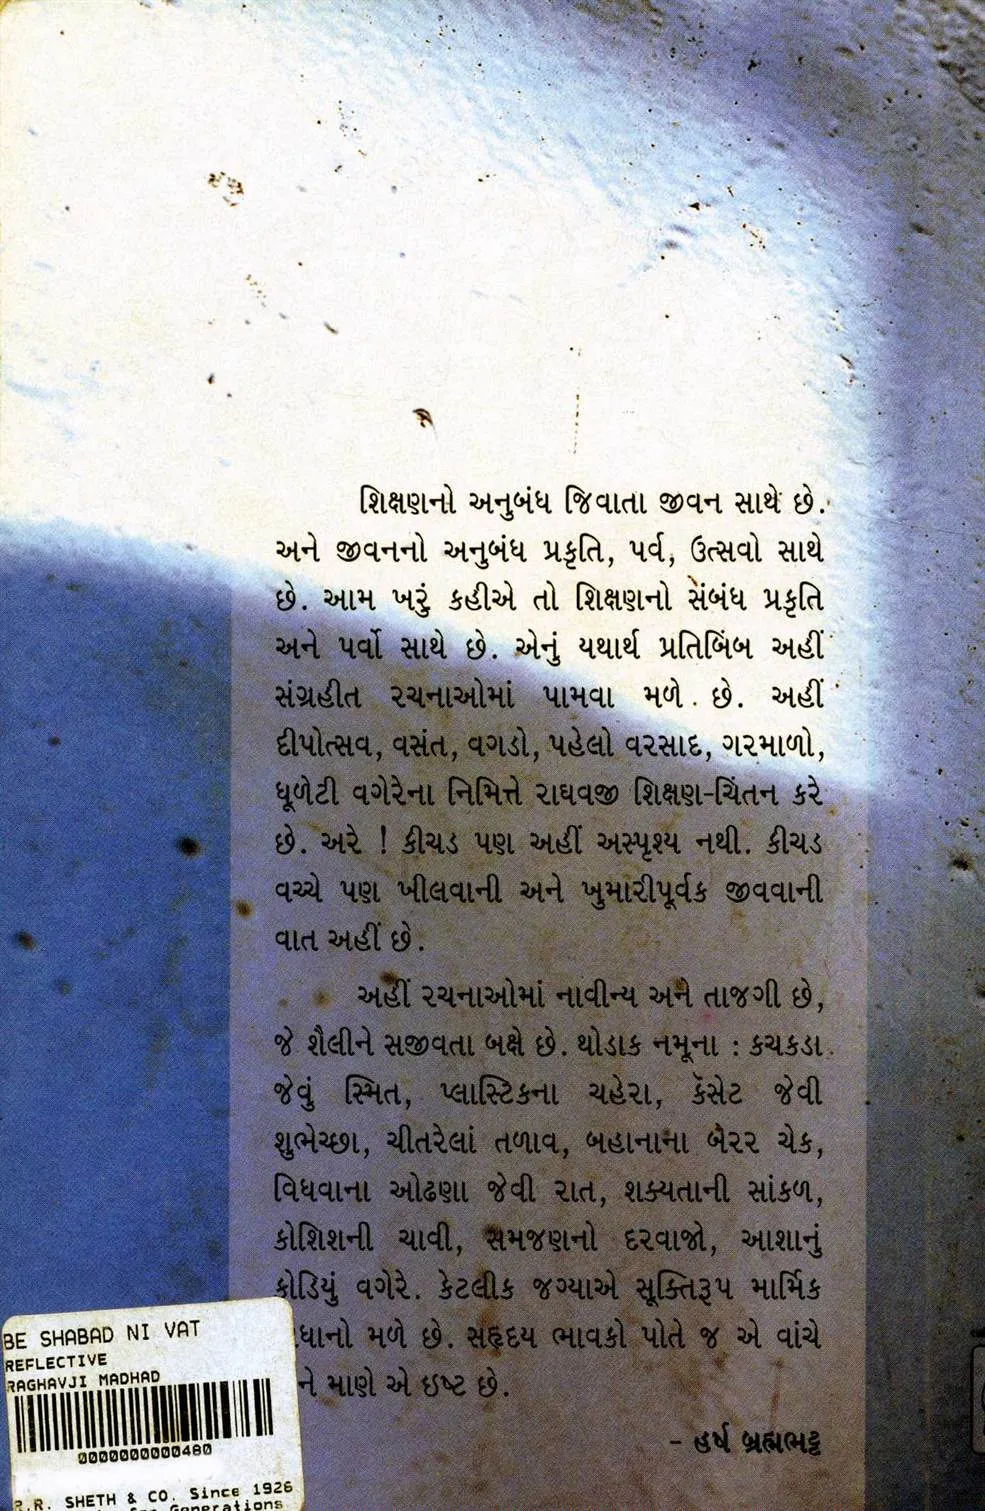 શિક્ષણનો અનુબંધ જિવાતા જીવન સાથે છે.
અને જીવનનો અનુબંધ પ્રકૃતિ, પર્વ, ઉત્સવો સાથે
છે. આમ ખરું કહીએ તો શિક્ષણનો સંબંધ પ્રકૃતિ
અને પર્વો સાથે છે. એનું યથાર્થ પ્રતિબિંબ અહીં
સંગ્રહીત રચનાઓમાં પામવા મળે છે. અહીં
દીપોત્સવ, વસંત, વગડો, પહેલો વરસાદ, ગરમાળો,
ધૂળેટી વગેરેના નિમિત્તે રાઘવજી શિક્ષણ-ચિંતન કરે
છે. અરે ! કીચડ પણ અહીં અસ્પૃશ્ય નથી. કીચડ
વચ્ચે પણ ખીલવાની અને ખુમારીપૂર્વક જીવવાની
વાત અહીં છે.
અહીં રચનાઓમાં નાવીન્ય અને તાજગી છે,
જે શૈલીને સજીવતા બક્ષે છે. થોડાક નમૂના : કચકડા
જેવું સ્મિત, પ્લાસ્ટિકના ચહેરા, કૅસેટ જેવી
શુભેચ્છા, ચીતરેલાં તળાવ, બહાનાના બેરર ચેક,
વિધવાના ઓઢણા જેવી રાત, શક્યતાની સાંકળ,
કોશિશની ચાવી, સમજણનો દરવાજો, આશાનું
કોડિયું વગેરે. કેટલીક જગ્યાએ સૂક્તિરૂપ માર્મિક
મળે છે. સહૃદય ભાવકો પોતે જ એ વાંચે
માણે એ ઇષ્ટ છે.
- હર્ષ બ્રહ્મભટ્ટ
BE SHABAD NI VAT
REFLECTIVE
RAGHAVJI MADHAD
0000000000480
R.R. SHETH & CO. Since 1926
Generations